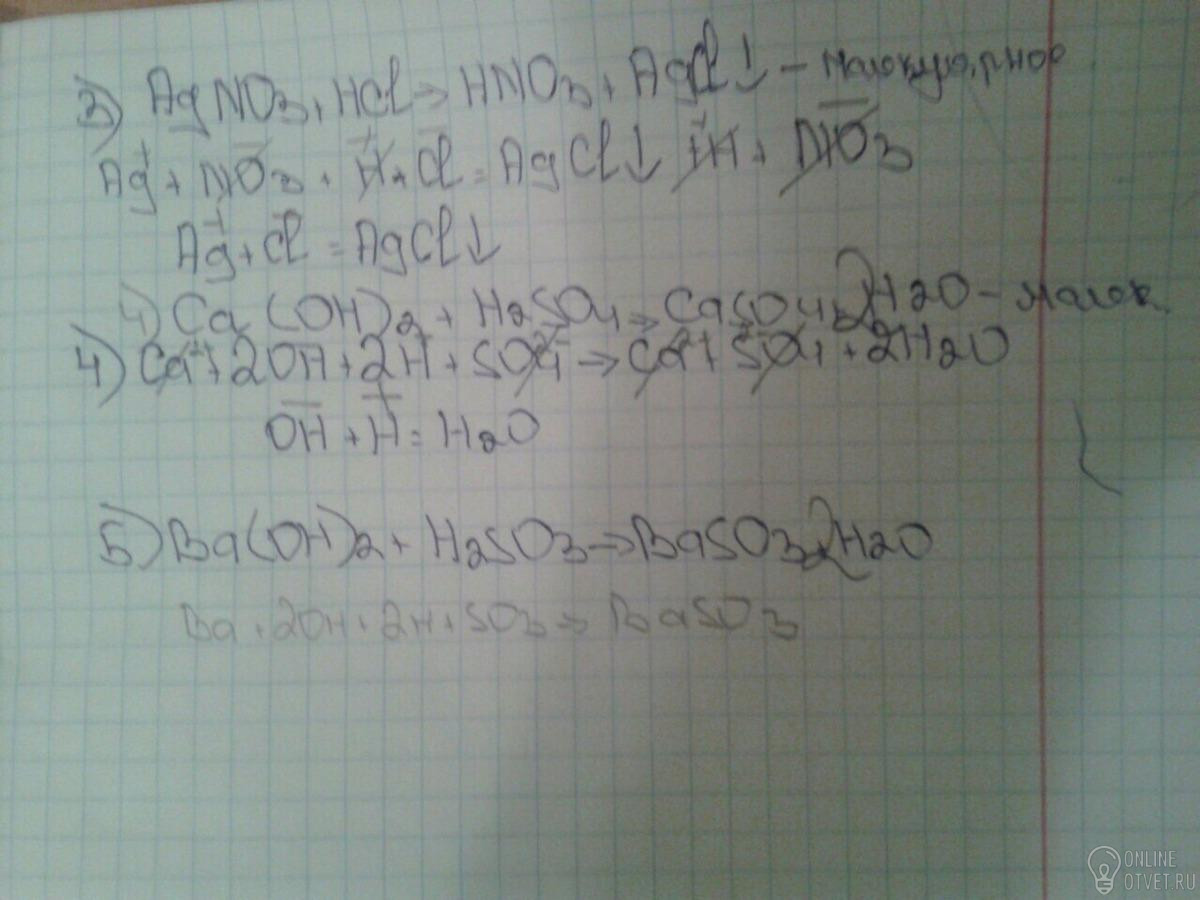 3) AgNO3 + HCl → HNO3 + AgCl↓ – малекулярное
Ag⁺ + NO3⁻ + H⁺ + Cl⁻ = AgCl↓ + H⁺ + NO3⁻
Ag⁺ + Cl⁻ = AgCl↓
4) Ca(OH)2 + H2SO4 → CaSO4 + 2H2O – малек.
4) Ca²⁺ + 2OH⁻ + 2H⁺ + SO4²⁻ → Ca²⁺ + SO4²⁻ + 2H2O
OH⁻ + H⁺ = H2O
5) Ba(OH)2 + H2SO3 → BaSO3 + 2H2O
Ba + 2OH + 2H + SO3 → BaSO3
ONLINE
OTVET.RU